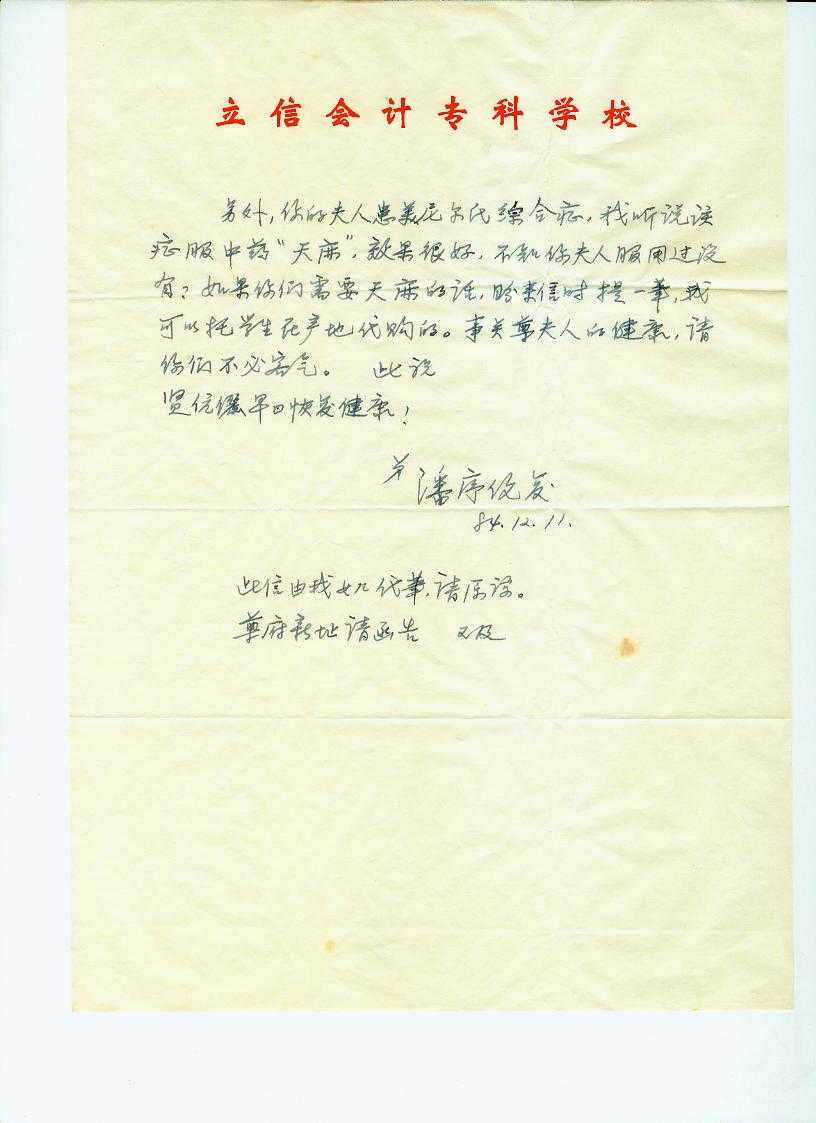 立信会计专科学校
另外,你的夫人患美尼尔氏综合症,我听说该
症服中药“天麻”,效果很好,不知你夫人服用过没
有?如果你们需要天麻的话,盼来信时提一笔,我
可以托学生在产地代购的。事关尊夫人的健康,请
你们不必客气。 此祝
贤伉俪早日恢复健康!
弟 潘序伦复
84.12.11.
此信由我女儿代笔,请原谅。
尊府新址请函告 又及